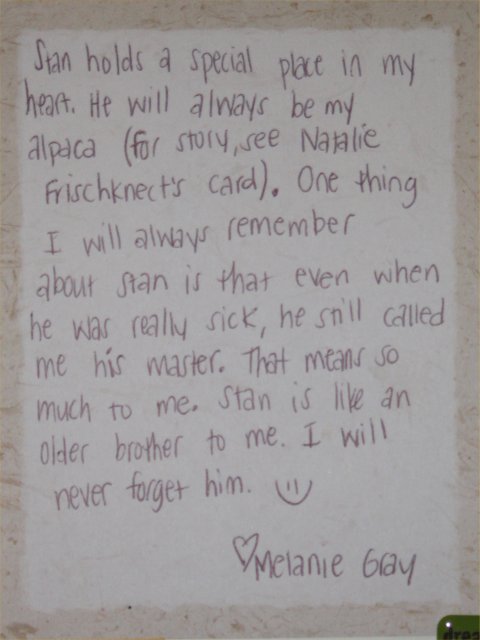 Stan holds a special place in my
heart. He will always be my
alpaca (for story, see Natalie
Frischknect's card). One thing
I will always remember
about Stan is that even when
he was really sick, he still called
me his master. That means so
much to me. Stan is like an
older brother to me. I will
never forget him.
♡Melanie Gray